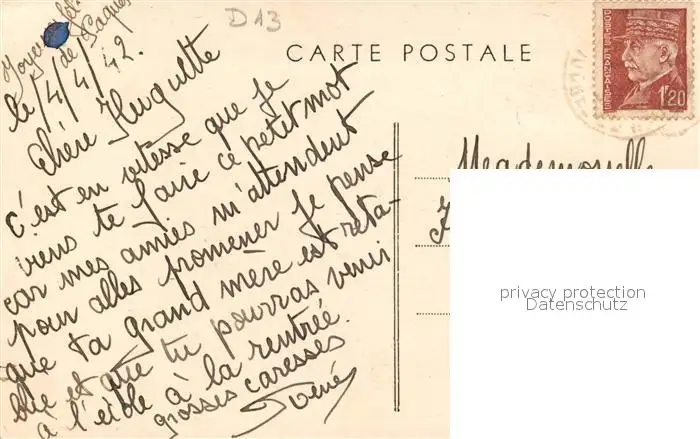 D13
Joyeuses
de Pâques
le 4/4/42.
CARTE POSTALE
POSTES FRANÇAISES
1F20
Chère Huguette
c'est en vitesse que je
viens te faire ce petit mot
car mes amies m'attendent
pour aller promener je pense
que ta grand mère est réta-
blie et que tu pourras venir
à l'école à la rentrée.
grosses caresses
Mademoiselle
privacy protection
Datenschutz